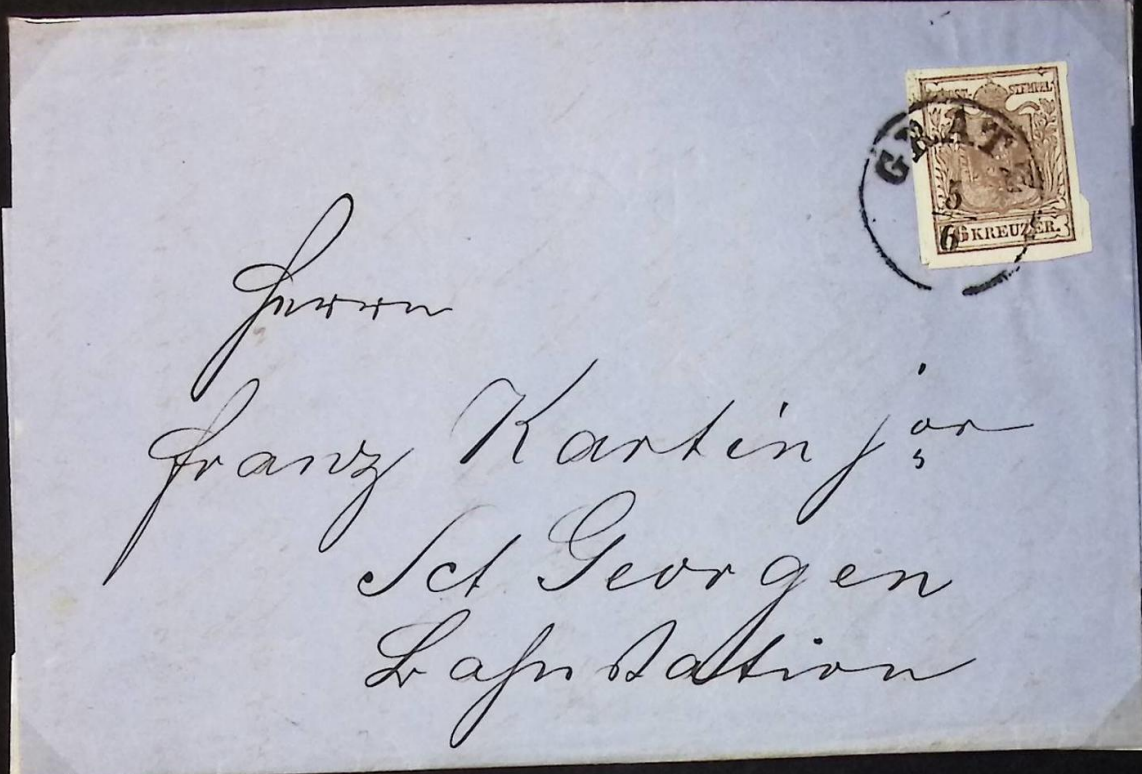 K.K. POST-STEMPEL
GRATZ
5
6
6 KREUZER.
Herrn
Franz Kartin jor
Sct Georgen
Bahnstation